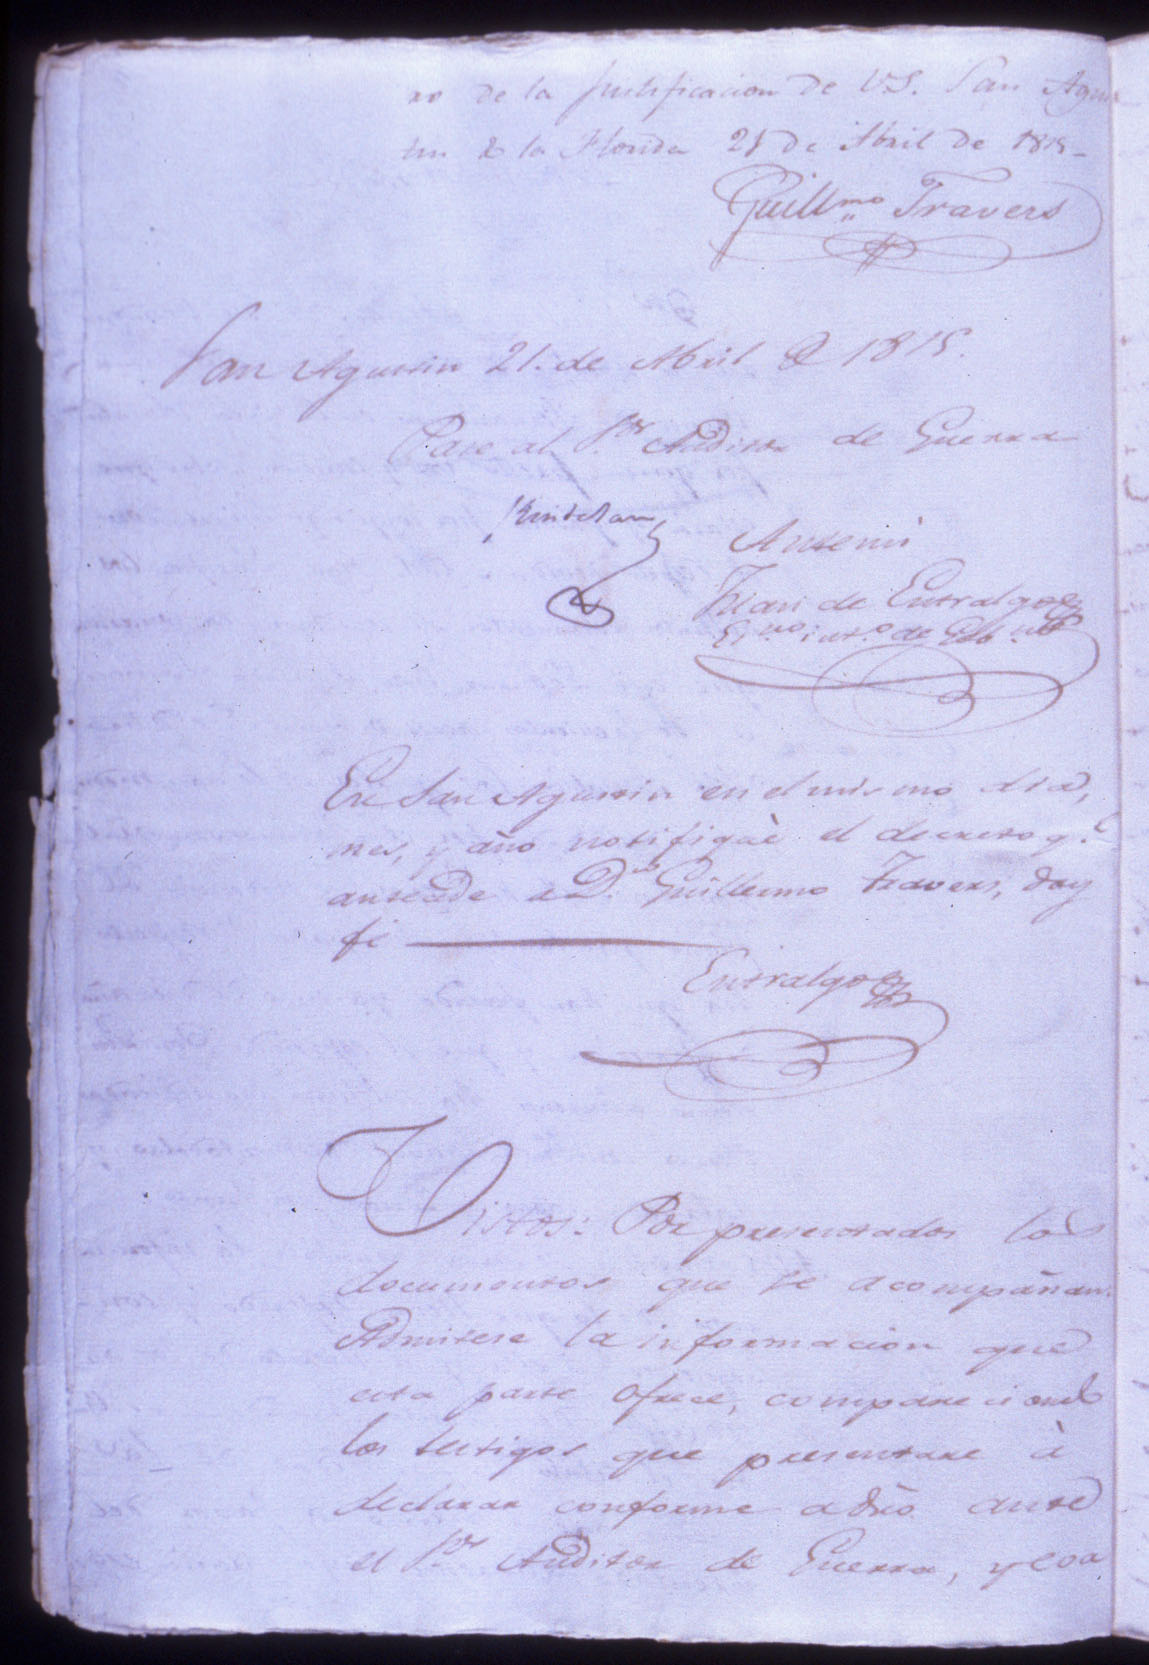 ro de la Justificacion de V.S. San Agus
tin de la Florida 21 De Abril de 1815 -
Guill.mo Travers
San Agustin 21. de Abril de 1815.
Pase al S.or Auditor de Guerra
Kindelan
Antemi
Juan de Entralgo
Es.no int.o de Gob.no
En San Agustin en el mismo dia,
mes, y año notifiquè el decreto q.e
antecede a D.n Guillermo Travers, doy
fé
Entralgo
Vistos: Por presentados los
documentos que se acompañan.
Admitese la informacion que
esta parte ofrece, compareciendo
los testigos que presentare à
declarar conforme a dro ante
el S.or Auditor de Guerra, y con